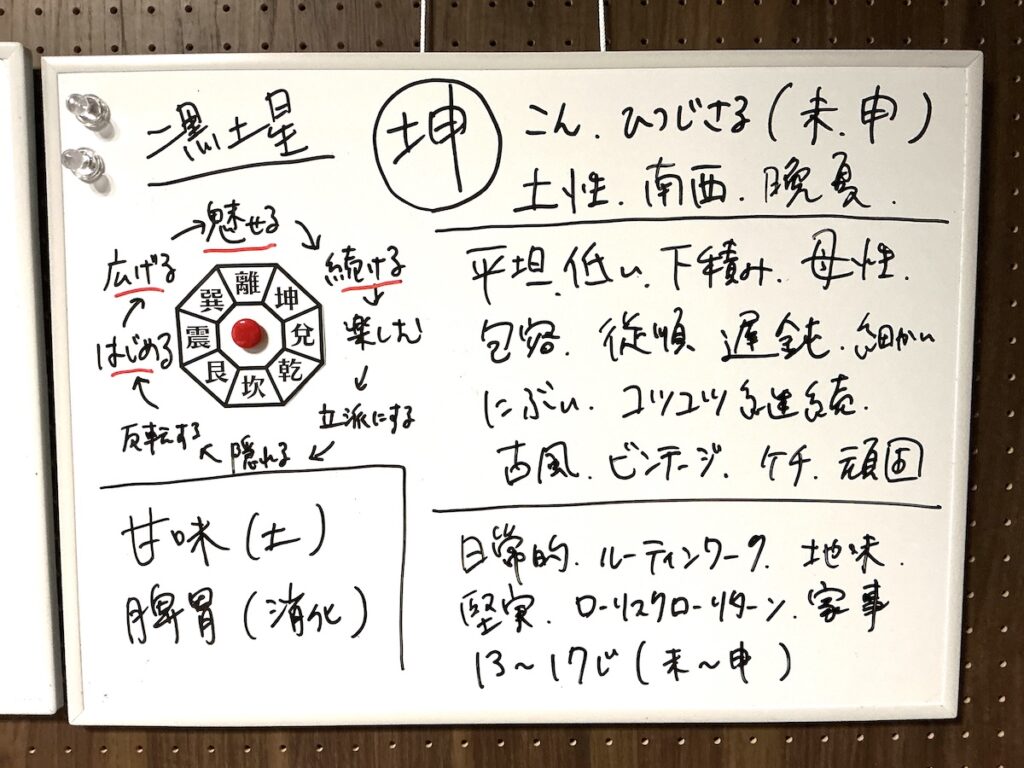 二黒土星
坤
こん、ひつじさる(未、申)
土性、南西、晩夏、
魅せる
広げる
続ける
はじめる
楽しむ
反転する
隠れる
立派にする
離
坤
兌
乾
坎
艮
震
巽
平坦、低い、下積み、母性、
包容、従順、遅鈍、細かい
にぶい、コツコツ継続、
古風、ビンテージ、ケチ、頑固
甘味(土)
脾胃(消化)
日常的、ルーティンワーク、地味、
堅実、ローリスクローリターン、家事
13〜17じ(未〜申)